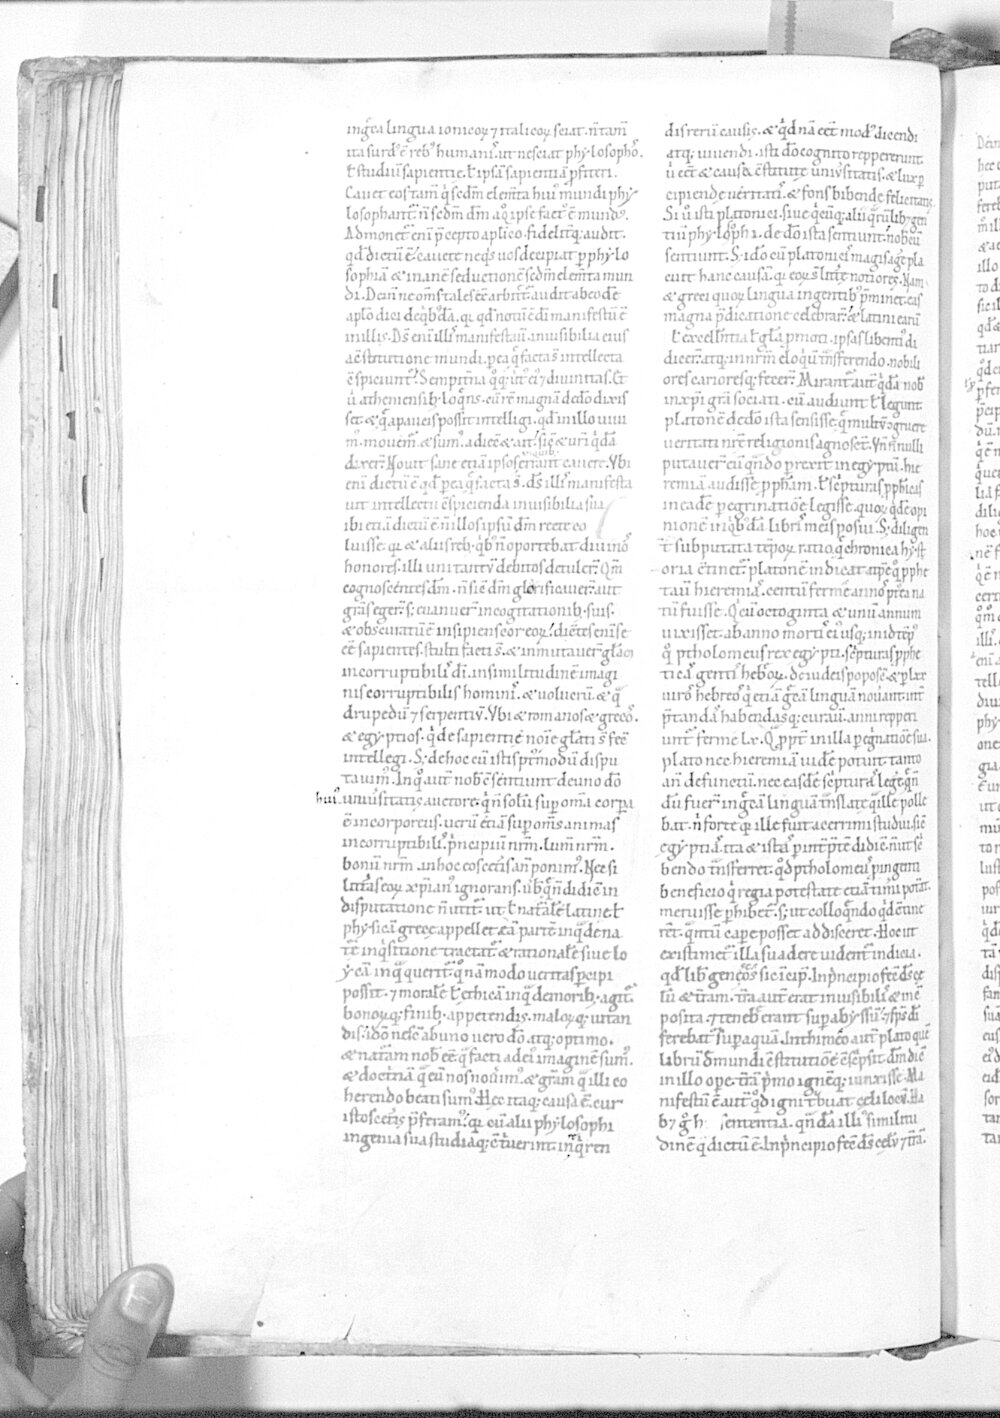 ingrea lingua ionicoꝝ ⁊ italicoꝝ sciat. n̄ tam̄
ita surdꝰ ē rebꝫ humanis. ut nesciat phylosophos.
ł studiū sapientię. ł ipsā sapientiā ꝓfiteri.
Cavet eos tam̄ q̇ sc̄dm elem̄ta huiꝰ mundi phy
losophant̄. n̄ sc̄dm dm̄ a q̊ ipse factꝰ ē mundꝰ.
Admonet̄ eni p̄cepto aplico. fidelit̄q; audit.
qd̄ dictū ē. cavete neq̇s vos decipiat ꝑ phylo
sophiā & inanē seductionē sc̄dm elem̄ta mun
di. Dein ne om̄s tales ēe arbit̄t̄. audit ab eodē
aplo dici de q̇bꝰdā. q; qd̄ notū ē di manifestū ē
in illis. Ds̄ eni illis manifestavit. invisibilia eiꝰ
a c̄stitutione mundi. ꝑ ea q̄ facta s̄ intellecta
c̄spiciunt̄. Sempit̄na q̊q; v̇tꝰ eiꝰ ⁊ divinitas. Et
ū atheniensibꝫ loq̄ns. cū rem magnā de do dixis
set & q̄ a paucis possit intelligi. qd̄ in illo vivi
mꝰ. movem̄. & sumꝰ. adiecit & ait. sic̄ & vr̄i q̇dā
dixer̄. Novit sane etiā ipsos in quibꝫ errant cavere. Vbi
eni dictū ē qd̄ ꝑ ea q̄ facta s̄. ds̄ illis manifesta
vit intellectu c̄spicienda invisibilia sua
ibi etiā dictū ē n̄ illos ipsū dm̄ recte co
luisse. q; & aliis rebꝫ. q̇bꝫ n̄ oportebat divinos
honores. illi uni tantū debitos detuler̄. Qm̄
cognoscentes dm̄. n̄ sic̄ dm̄ glorificaver̄. aut
grās eger̄. s; evanuer̄ in cogitationibꝫ suis.
& obscuratū ē insipiens cor eoꝝ. dicētes eni se
ēe sapientes. stulti facti s̄. & inmutaver̄ glām
incorruptibilis di. in similitudinē imagi
nis corruptibilis hominis. & volucrū. & q̄
drupedū ⁊ serpentiū. Vbi & romanos & grecos.
& egyptios. q̇ de sapientię noīe gl̄ati s̄ fec̄
intellegi. S; de hoc cū istis post modū dispu
tavimꝰ. In q̊ aut̄ nob̄ c̄sentiunt de uno do
huiꝰ univ̄sitatis auctore. q̇ n̄ solū suꝑ om̄ia corpa
ē incorporeus. verū etiā suꝑ om̄s animas
incorruptibilis. ṗncipiū nr̄m. lum̄ nr̄m.
bonū nr̄m. in hoc eos cet̄is anponimꝰ. Nec si
litt̄as eoꝝ xp̄ianꝰ ignorans. v̄bꝫ q̄ n̄ didicit in
disputatione n̄ utit̄. ut ł nat̄alē latine. ł
physicā grece appellet eā partē in q̄ de na
tę inq̇sitione tractat̄. & rationalē sive lo
ycā in q̄ querit̄. q̊nā modo veritas ꝑcipi
possit. ⁊ moralē ł ethicā in q̄ de moribꝫ. agit̄.
bonoꝝq; finibꝫ. appetendis. maloꝝq; vitan
dis. idō nesc̄ ab uno vero do. atq; optimo.
& nat̄am nob̄ ēe q̄ facti ad ei imaginē sumꝰ.
& doct̄nā q̄ eū nos noṡimꝰ. & grām q̄ illi co
herendo beati sumꝰ. Hec itaq; causa ē. cur
istos cet̄is p̄feramꝰ. q; cū alii phylosophi
ingenia sua studiaq; c̄t̄verint. in q̇ren
dis rerū causis. & q̇dnā ēet modꝰ discendi
atq; vivendi. isti do cognito reppererunt
ū ēet & causa c̄stitutę univ̄sitatis. & lux ꝑ
cipiende veritatis. & fons bibende felicitatis.
Si ū isti platonici. sive q̇cūq; alii q̄rūlibꝫ gen
tiū phylosophi. de do ista sentiunt. nob̄cū
sentiunt. S; ido cū platonicis magis ag̊e pla
cuit hanc causā. q; eoꝝ s̄ litt̄ę notiores. Nam
& greci quoꝝ lingua in gentibꝰ p̄minet. eas
magna p̄dicatione celebrar̄. & latini earū
ł excell̄ntia ł glā ꝑmoti. ipsas libentiꝰ di
dicer̄. atq; in nr̄m eloq̇ū t̄nsferendo. nobili
ores carioresq; fecer̄. Mirant̄ aut̄ q̇dā nob̄
in xp̄i grā sociati. cū audiunt ł legunt
platonē de do ista sensisse. q̄ multū c̄gruere
veritati nr̄ę religionis agnosc̄t. Vn̄ n̄nulli
putaver̄ eū q̄ndo ꝑrexit in egyptū. hie
remiā audisse ꝓphā. ł scripturas ꝓpheticas
in eadē peregrinatione legisse. quoꝝ q̇dē opi
nionē in q̇bꝰdā libris meis posui. S; diligen
t̄ subputata tēpoꝝ ratio. q̄ chronica hyst
oria c̄tinet̄. platonē indicat a tpe q̊ ꝓphe
tavit hieremias. centū ferme annos postea na
tū fuisse. Q; cū octoginta & unū annum
vixisset. ab anno mortis eiꝰ usq; in id tēpꝰ
q̊ ptholomeus rex egypti. scripturas ꝓphe
ticas gentis hebreoꝝ. de iudeis poposc̄. & ꝑ lxx
viros hebreos q̇ etiā grecā linguā noverant. int̄
p̄tandas habendasq; curavit. anni repperi
unt̄ ferme lx. Q̄ ꝓpt̄ in illa peregnatione sua.
plato nec hieremiā vidē potuit. tanto
an̄ defunctū. nec easdē scripturas legē q̄ n
dū fuer̄ in grecā linguā t̄nslate q̄ ille polle
bat. n̄ forte q; ille fuit acerrimi studii. sic̄
egyptias. ita & istas ꝑ int̄p̄tē didicit. n̄ ut sc̄
bendo t̄nsferret. qd̄ ptholomeus ꝓ ingenti
beneficio q̇ regia potestate etiā timi potat̄.
meruisse ꝑhibet̄. s; ut colloq̄ndo qd̄ c̄tine
ret̄. q̄ntū capere posset addisceret. Hoc ut
existimet̄ illa suadere vident̄ indicia.
qd̄ lib̄ geneseos sic incip̄. In ṗncipio fec̄ ds̄ ce
lū & t̄ram. t̄ra aut̄ erat invisibilis & inc̄
posita. ⁊ tenebrę erant suꝑ abyssū. ⁊ sp̄s di
ferebat̄ suꝑ aquā. In thimeo aut̄ plato quē
librū de mundi c̄stitutione c̄scripsit. dm̄ dic̄
in illo oꝑe. t̄rā ṗmo ignēq; iunxisse. Ma
nifestū ē aut̄ qd̄ igni t̄buat celi locū. Ha
b; ḡ h sententia. q̄ndā illiꝰ similitu
dinē q̊ dictū ē. In ṗncipio fec̄ ds̄ celū ⁊ t̄rā.